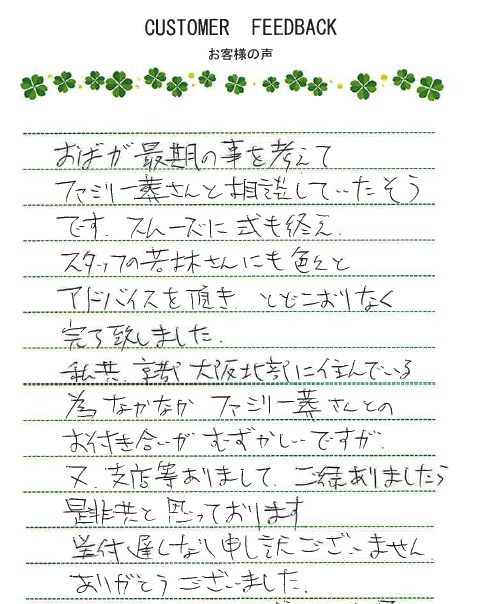 CUSTOMER FEEDBACK
お客様の声
おばが最期の事を考えて
ファミリー葬さんと相談していたそう
です。スムーズに式も終え、
スタッフの若林さんにも色々と
アドバイスを頂き、とどこおりなく
完了致しました。
私共、京都、大阪北部に住んでいる
為なかなかファミリー葬さんとの
お付き合いがむずかしいですが、
又、支店等ありまして、ご縁ありましたら
是非共と思っております
送付遅くなり申し訳ございません。
ありがとうございました。